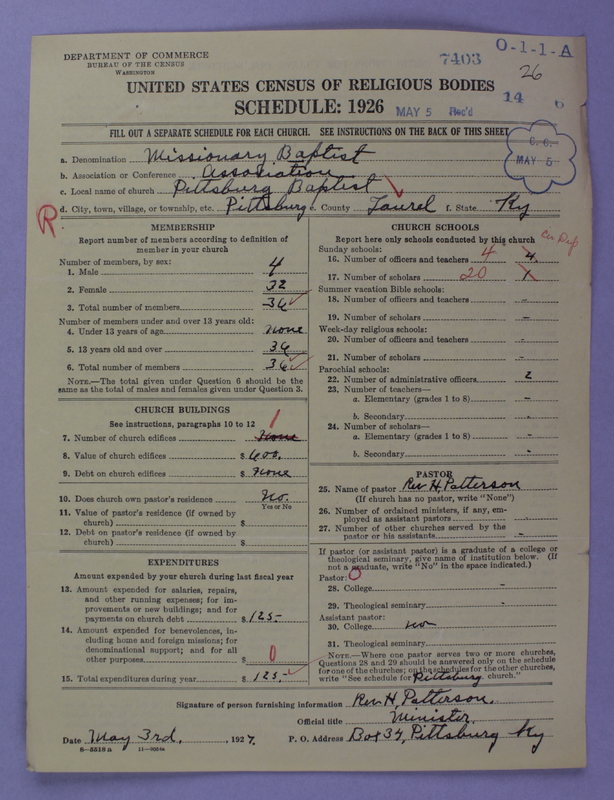 DEPARTMENT OF COMMERCE
BUREAU OF THE CENSUS
WASHINGTON
7403
O-1-1-A
26
UNITED STATES CENSUS OF RELIGIOUS BODIES
SCHEDULE: 1926
MAY 5 Rec'd
14 6
FILL OUT A SEPARATE SCHEDULE FOR EACH CHURCH. SEE INSTRUCTIONS ON THE BACK OF THIS SHEET
C. C.
MAY 5
a. Denomination Missionary Baptist
b. Association or Conference Association
c. Local name of church Pittsburg Baptist
R
d. City, town, village, or township, etc. Pittsburg e. County Laurel f. State Ky
MEMBERSHIP
Report number of members according to definition of
member in your church
Number of members, by sex:
1. Male 4
2. Female 32
3. Total number of members 36
Number of members under and over 13 years old:
4. Under 13 years of age none
5. 13 years old and over 36
6. Total number of members 36
NOTE.—The total given under Question 6 should be
same as the total of males and females given under Question 3.
CHURCH BUILDINGS
See instructions, paragraphs 10 to 12
7. Number of church edifices 1 None
8. Value of church edifices $ 600.
9. Debt on church edifices $ None
10. Does church own pastor's residence No.
Yes or No
11. Value of pastor's residence (if owned by
church) $
12. Debt on pastor's residence (if owned by
church) $
EXPENDITURES
Amount expended by your church during last fiscal year
13. Amount expended for salaries, repairs,
and other running expenses; for im-
provements or new buildings; and for
payments on church debt $ 125-
14. Amount expended for benevolences, in-
cluding home and foreign missions; for
denominational support; and for all
other purposes $ 0
15. Total expenditures during year $ 125.-
CHURCH SCHOOLS
Report here only schools conducted by this church
Sunday schools:
16. Number of officers and teachers 4 4
17. Number of scholars 20 1
Summer vacation Bible schools:
18. Number of officers and teachers -
19. Number of scholars -
Week-day religious schools:
20. Number of officers and teachers -
21. Number of scholars -
Parochial schools:
22. Number of administrative officers 2
23. Number of teachers—
a. Elementary (grades 1 to 8) -
b. Secondary -
24. Number of scholars—
a. Elementary (grades 1 to 8) -
b. Secondary -
PASTOR
25. Name of pastor Rev H. Patterson
(If church has no pastor, write "None")
26. Number of ordained ministers, if any, em-
ployed as assistant pastors
27. Number of other churches served by the
pastor or his assistants
If pastor (or assistant pastor) is a graduate of a college or
theological seminary, give name of institution below. (If
not a graduate, write "No" in the space indicated.)
Pastor: O
28. College -
29. Theological seminary -
Assistant pastor:
30. College no
31. Theological seminary
NOTE.—Where one pastor serves two or more churches,
Questions 28 and 29 should be answered only on the schedule
for one of the churches; on the schedules for the other churches,
write "See schedule for Pittsburg church."
Signature of person furnishing information Rev H. Patterson.
Official title Minister.
Date May 3rd, , 1927. P. O. Address Box 34, Pittsburg Ky
8-5516 a 11-9024a